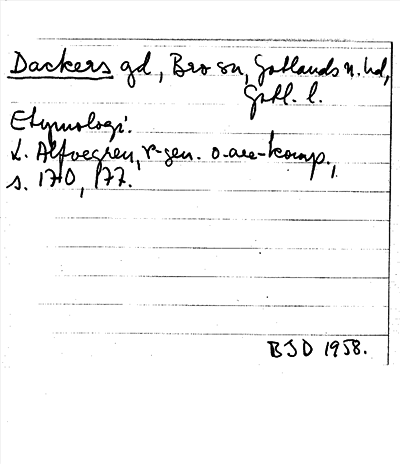 Dackers gd, Bro sn, Gotlands n. hd,
Gotl. l.
Etymologi:
L. Alfvegren, r-gen. o. are-komp.,
s. 170, 177.
BJD 1958.